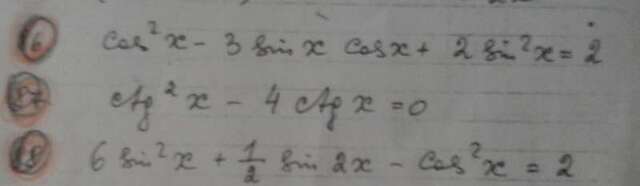 16 cos²x - 3 sin x cos x + 2 sin²x = 2
17 ctg²x - 4 ctg x = 0
18 6 sin²x + 1/2 sin 2x - cos²x = 2